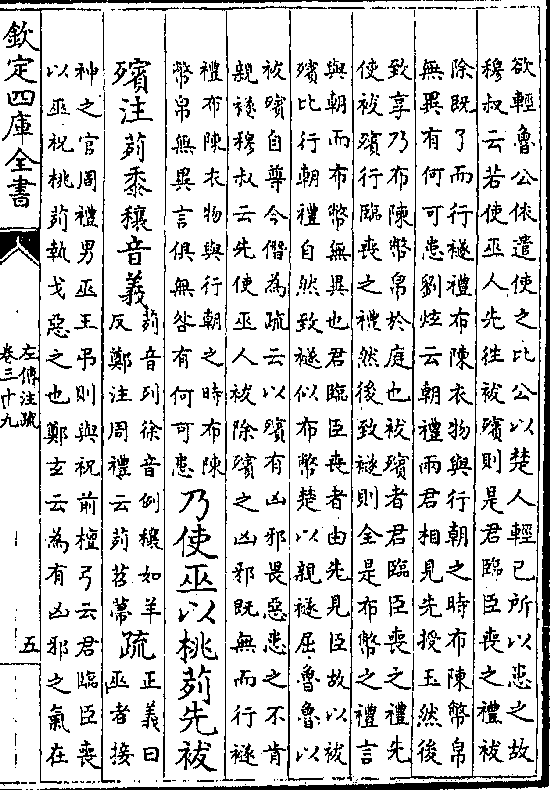 欲輕魯公依遣使之比公以楚人輕已所以患之故
穆叔云若使巫人先往祓殯則是君臨臣喪之禮祓
除既了而行襚禮布陳衣物與行朝之時布陳幣帛
無異有何可患劉炫云朝禮兩君相見先授玉然後
致享乃布陳幣帛於庭也祓殯者君臨臣喪之禮先
使祓殯行臨喪之禮然後致襚則全是布幣之禮言
與朝而布幣無異也君臨臣喪者由先見臣故以祓
殯比行朝禮自然致襚似布幣楚以親襚屈魯魯以
祓殯自尊今僭為疏云以殯有凶邪畏惡患之不肯
親襚穆叔云先使巫人祓除殯之凶邪既無而行襚
禮布陳衣物與行朝之時布陳
幣帛無異言俱無咎有何可患
乃使巫以桃茢先祓
殯注茢黍穰音義
茢音列徐音例穰如羊
反鄭注周禮云茢苕蔕
疏
正義曰
巫者接
神之官周禮男巫王弔則與祝前檀弓云君臨臣喪
以巫祝桃茢執戈惡之也鄭玄云為有凶邪之氣在
欽定四庫全書
左傳注疏
卷三十九
五